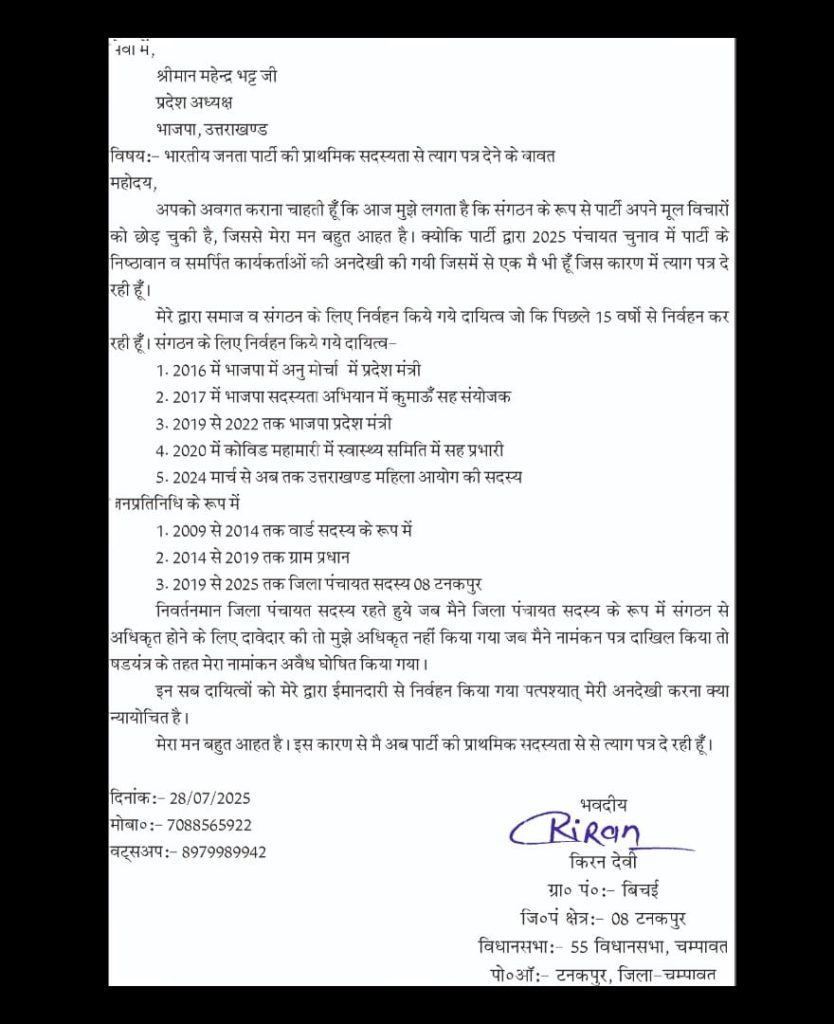 सेवा में,
श्रीमान महेन्द्र भट्ट जी
प्रदेश अध्यक्ष
भाजपा, उत्तराखण्ड
विषय:– भारतीय जनता पार्टी की प्राथमिक सदस्यता से त्याग पत्र देने के बावत
महोदय,
अपको अवगत कराना चाहती हूँ कि आज मुझे लगता है कि संगठन के रूप से पार्टी अपने मूल विचारों
को छोड़ चुकी है, जिससे मेरा मन बहुत आहत है। क्योकि पार्टी द्वारा 2025 पंचायत चुनाव में पार्टी के
निष्ठावान व समर्पित कार्यकर्ताओं की अनदेखी की गयी जिसमें से एक मै भी हूँ जिस कारण में त्याग पत्र दे
रही हूँ।
मेरे द्वारा समाज व संगठन के लिए निर्वहन किये गये दायित्व जो कि पिछले 15 वर्षो से निर्वहन कर
रही हूँ। संगठन के लिए निर्वहन किये गये दायित्व–
1. 2016 में भाजपा में अनु मोर्चा में प्रदेश मंत्री
2. 2017 में भाजपा सदस्यता अभियान में कुमाऊँ सह संयोजक
3. 2019 से 2022 तक भाजपा प्रदेश मंत्री
4. 2020 में कोविड महामारी में स्वास्थ्य समिति में सह प्रभारी
5. 2024 मार्च से अब तक उत्तराखण्ड महिला आयोग की सदस्य
जनप्रतिनिधि के रूप में
1. 2009 से 2014 तक वार्ड सदस्य के रूप में
2. 2014 से 2019 तक ग्राम प्रधान
3. 2019 से 2025 तक जिला पंचायत सदस्य 08 टनकपुर
निवर्तनमान जिला पंचायत सदस्य रहते हुये जब मैने जिला पंचायत सदस्य के रूप में संगठन से
अधिकृत होने के लिए दावेदार की तो मुझे अधिकृत नहीं किया गया जब मैने नामंकन पत्र दाखिल किया तो
षडयंत्र के तहत मेरा नामांकन अवैध घोषित किया गया।
इन सब दायित्वों को मेरे द्वारा ईमानदारी से निर्वहन किया गया पत्पश्यात् मेरी अनदेखी करना क्या
न्यायोचित है।
मेरा मन बहुत आहत है। इस कारण से मै अब पार्टी की प्राथमिक सदस्यता से से त्याग पत्र दे रही हूँ।
दिनांक:– 28/07/2025
मोबा०:– 7088565922
वट्सअप:– 8979989942
भवदीय
Kiran
किरन देवी
ग्रा० पं०:– बिचई
जि०पं क्षेत्र:– 08 टनकपुर
विधानसभा:– 55 विधानसभा, चम्पावत
पो०ऑ:– टनकपुर, जिला–चम्पावत